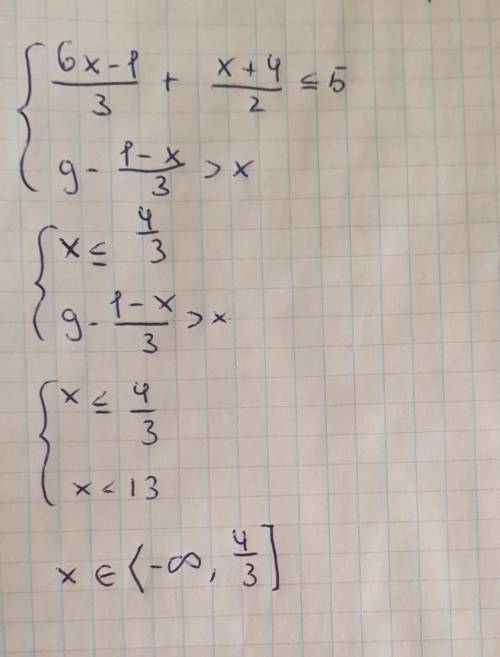 { (6x-1)/3 + (x+4)/2 ≤ 5
9 - (1-x)/3 > x
{ x ≤ 4/3
9 - (1-x)/3 > x
{ x ≤ 4/3
x < 13
x ∈ ⟨-∞, 4/3]